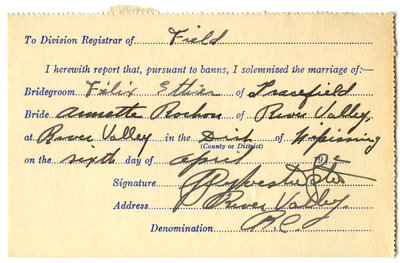 To Division Registrar of Field
I herewith report that, pursuant to banns, I solemnized the marriage of:—
Bridegroom Felix Ethier of Gracefield
Bride Annette Rochon of River Valley,
at River Valley in the Dist of Nipissing
(County or District)
on the sixth day of april 19
Signature
Address River Valley.
Denomination R.C